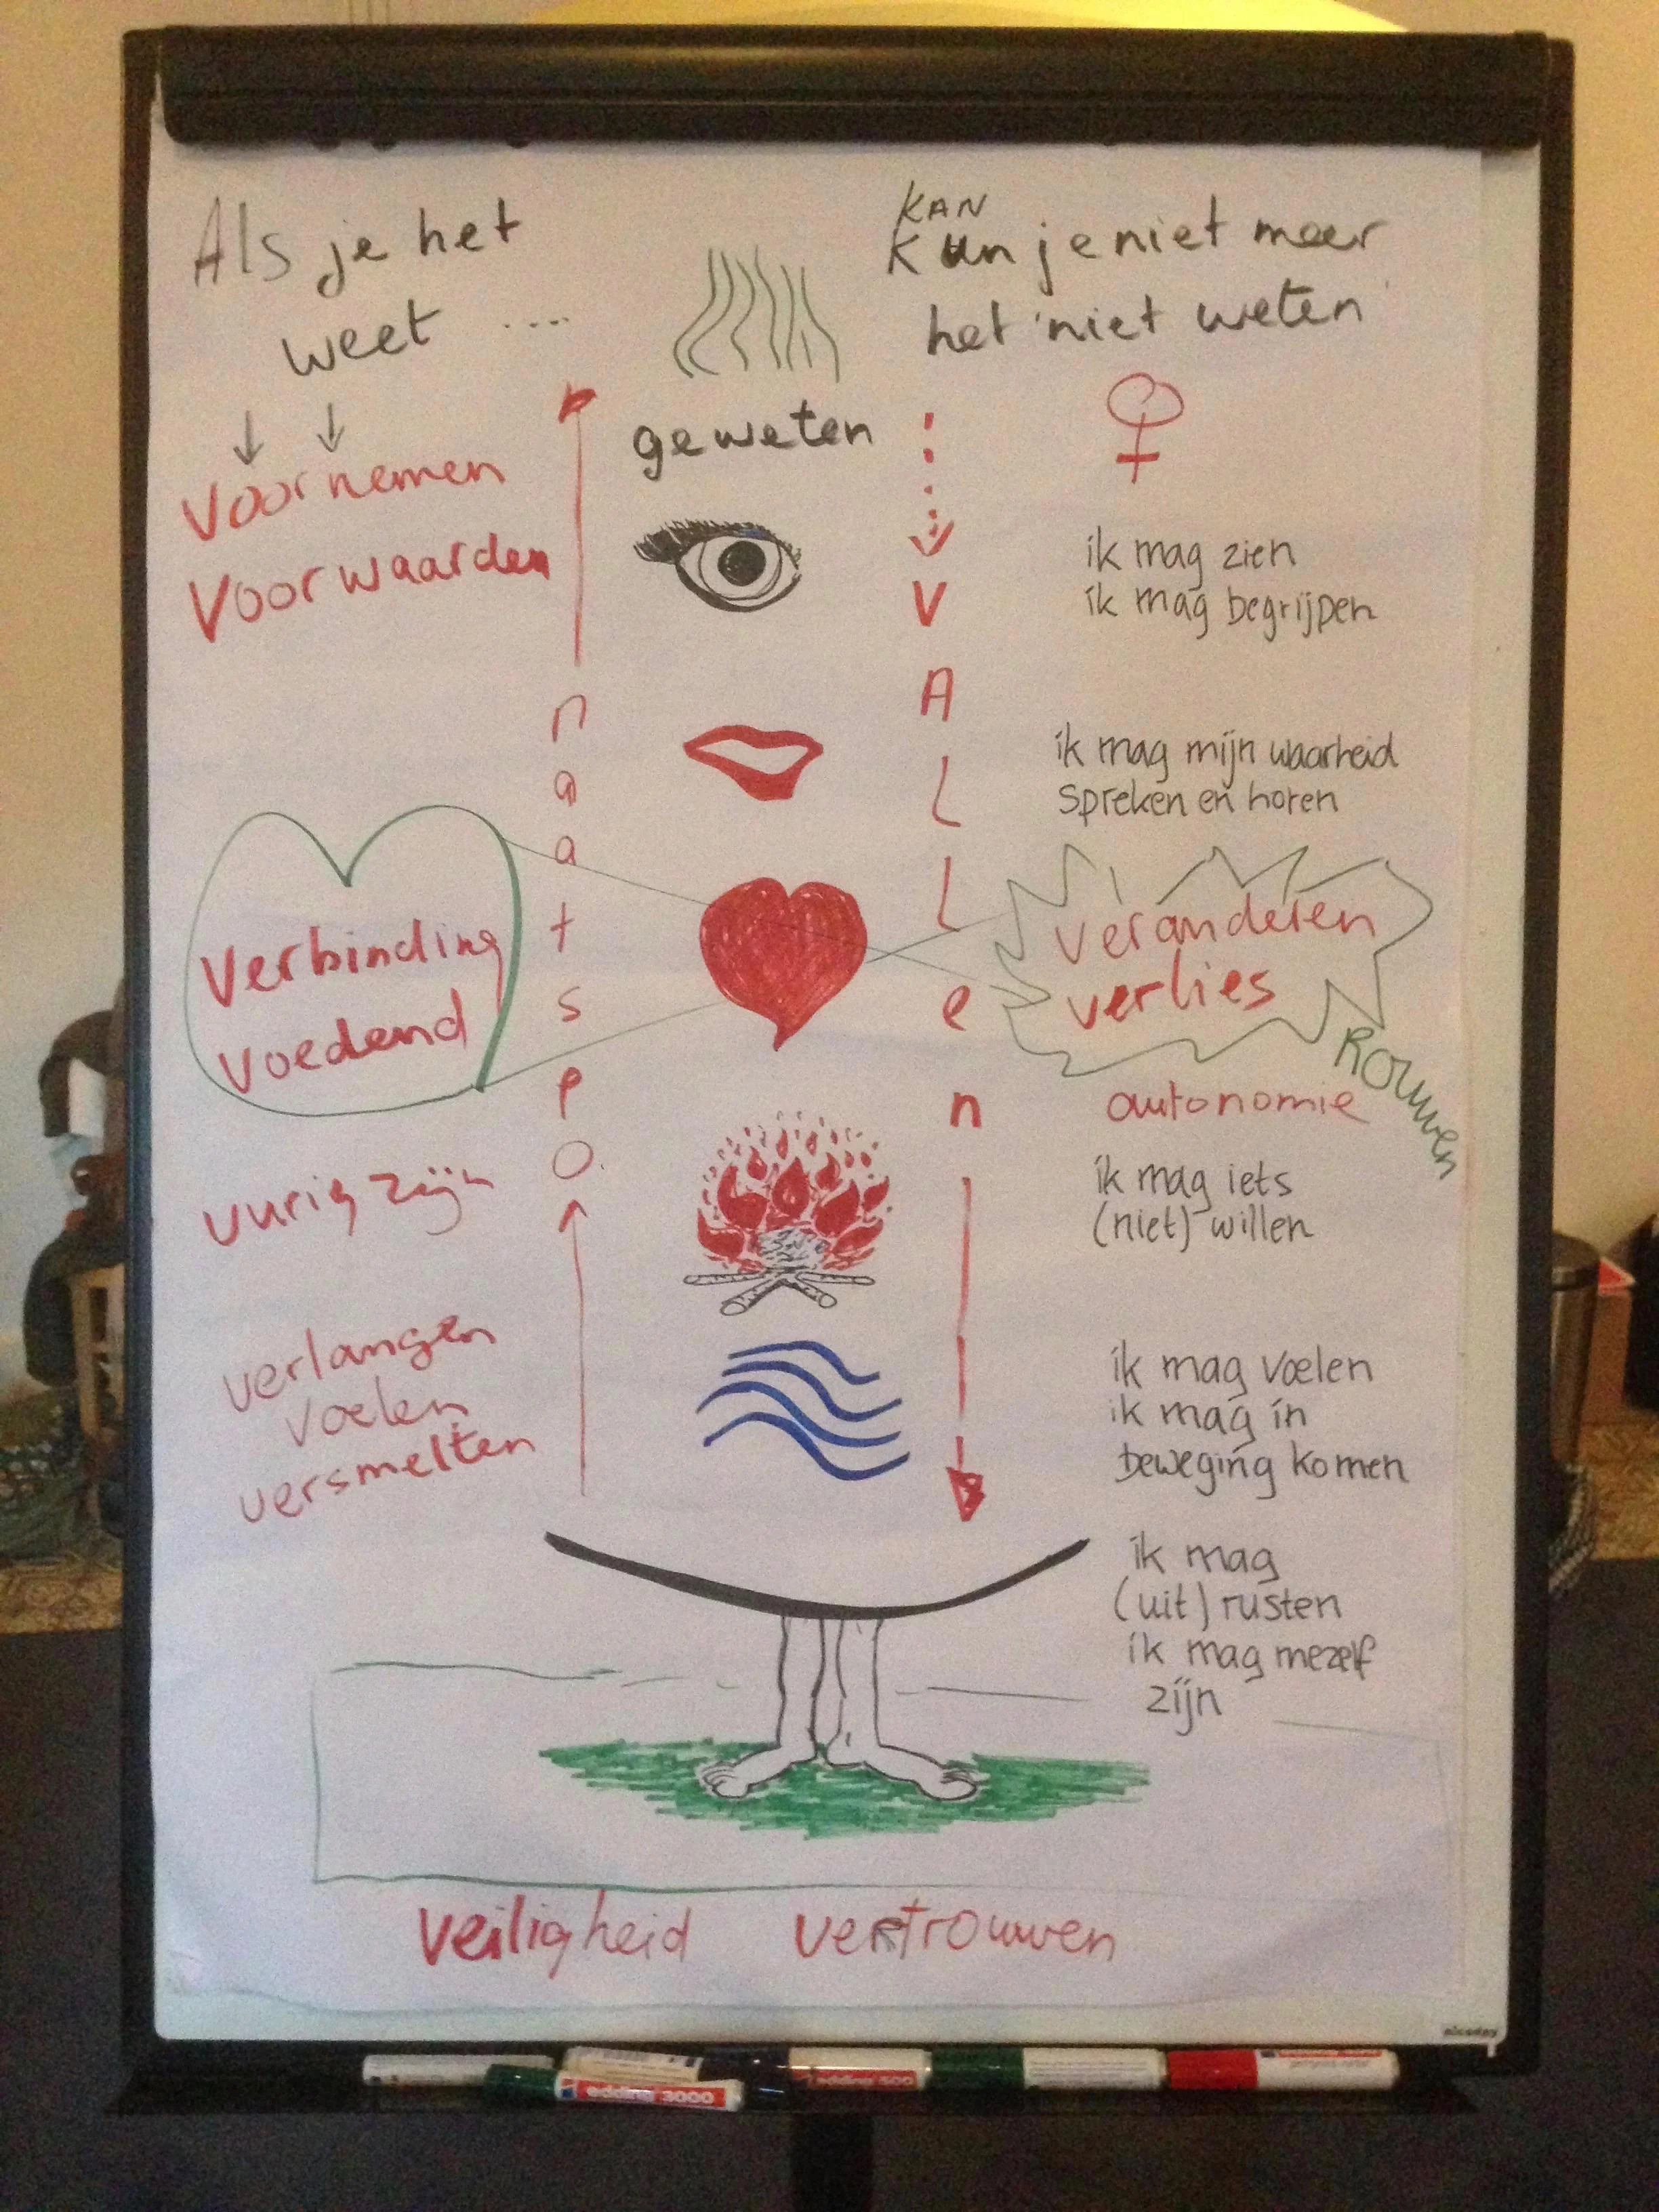 Als je het
weet ....
KAN
Kun je niet meer
het 'niet weten'
geweten
Voornemen
Voorwaarden
ik mag zien
ik mag begrijpen
opstaan
VALLen
ik mag mijn waarheid
spreken en horen
Verbinding
Voedend
veranderen
verlies
Rouwen
autonomie
vurig zijn
ik mag iets
(niet) willen
verlangen
voelen
versmelten
ik mag voelen
ik mag in
beweging komen
ik mag
(uit) rusten
ik mag mezelf
zijn
veiligheid vertrouwen
edding 3000
edding 500